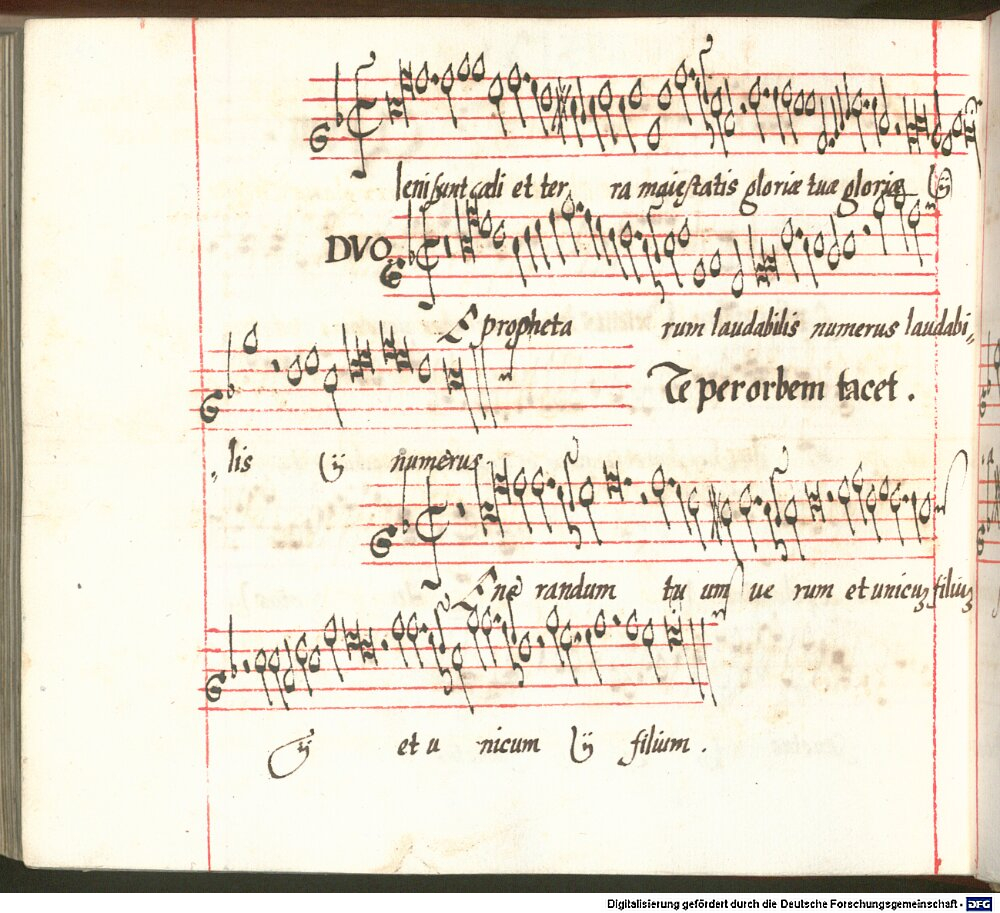 leni sunt cæli et ter ra maiestatis gloriæ tuæ gloriæ ij
DVO
E propheta rum laudabilis numerus laudabi„
„lis ij numerus
Te per orbem tacet.
Ene randum tu um ue rum et unicuʒ filiuʒ
ij et u nicum ij filium.
Digitalisierung gefördert durch die Deutsche Forschungsgemeinschaft - DFG